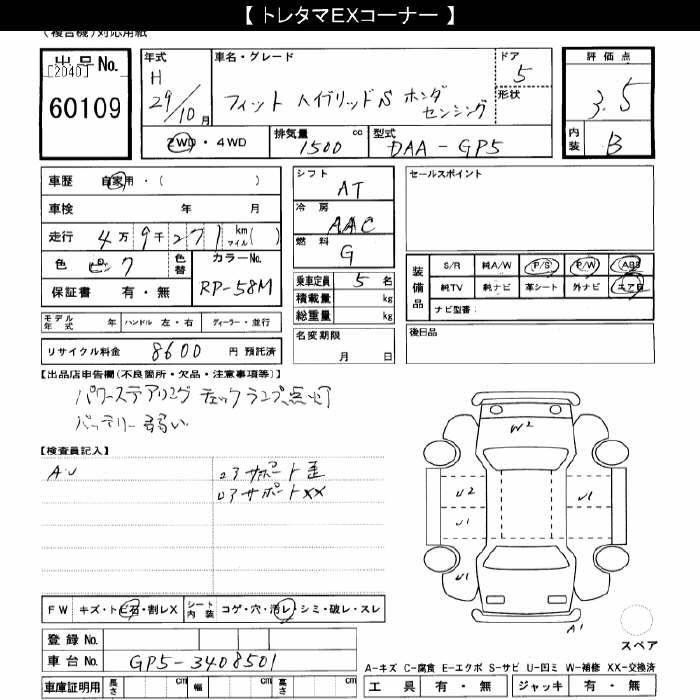 【 トレタマEXコーナー 】
(複合機)対応用紙
出品No.
[2040]
60109
年式
H
29/10月
車名・グレード
フィット ハイブリッドS ホンダ
センシング
ドア
5
形状
評価点
3.5
内装
B
2WD・4WD
排気量 cc
1500
型式
DAA-GP5
車歴 自家用・( )
車検 年 月
走行 4万9千271 km マイル( )
色 ピンク
色替
カラーNo.
RP-58M
保証書 有・無
モデル年式 年 ハンドル 左・右 ディーラー・並行
リサイクル料金 8600 円 預託済
シフト
AT
冷房
AAC
燃料
G
乗車定員 5 名
積載量 kg
総重量 kg
名変期限
月 日
セールスポイント
装備品
S/R 純A/W P/S P/W ABS
純TV 純ナビ 革シート 外ナビ エアB
ナビ型番:
後日品
【出品店申告欄(不良箇所・欠品・注意事項等)】
パワーステアリング チェックランプ点灯
バッテリー弱い
【検査員記入】
AU
ロアサポート歪
ロアサポートXX
W2
U2
U1
U1
U1
A1
スペア
FW キズ・トビ石・割レX
シート内装 コゲ・穴・汚レ・シミ・破レ・スレ
登録No.
車台No. GP5-3408501
車庫証明用 長さ cm 幅 cm 高さ cm
A-キズ C-腐食 E-エクボ S-サビ U-凹ミ W-補修 XX-交換済
工具 有・無 ジャッキ 有・無